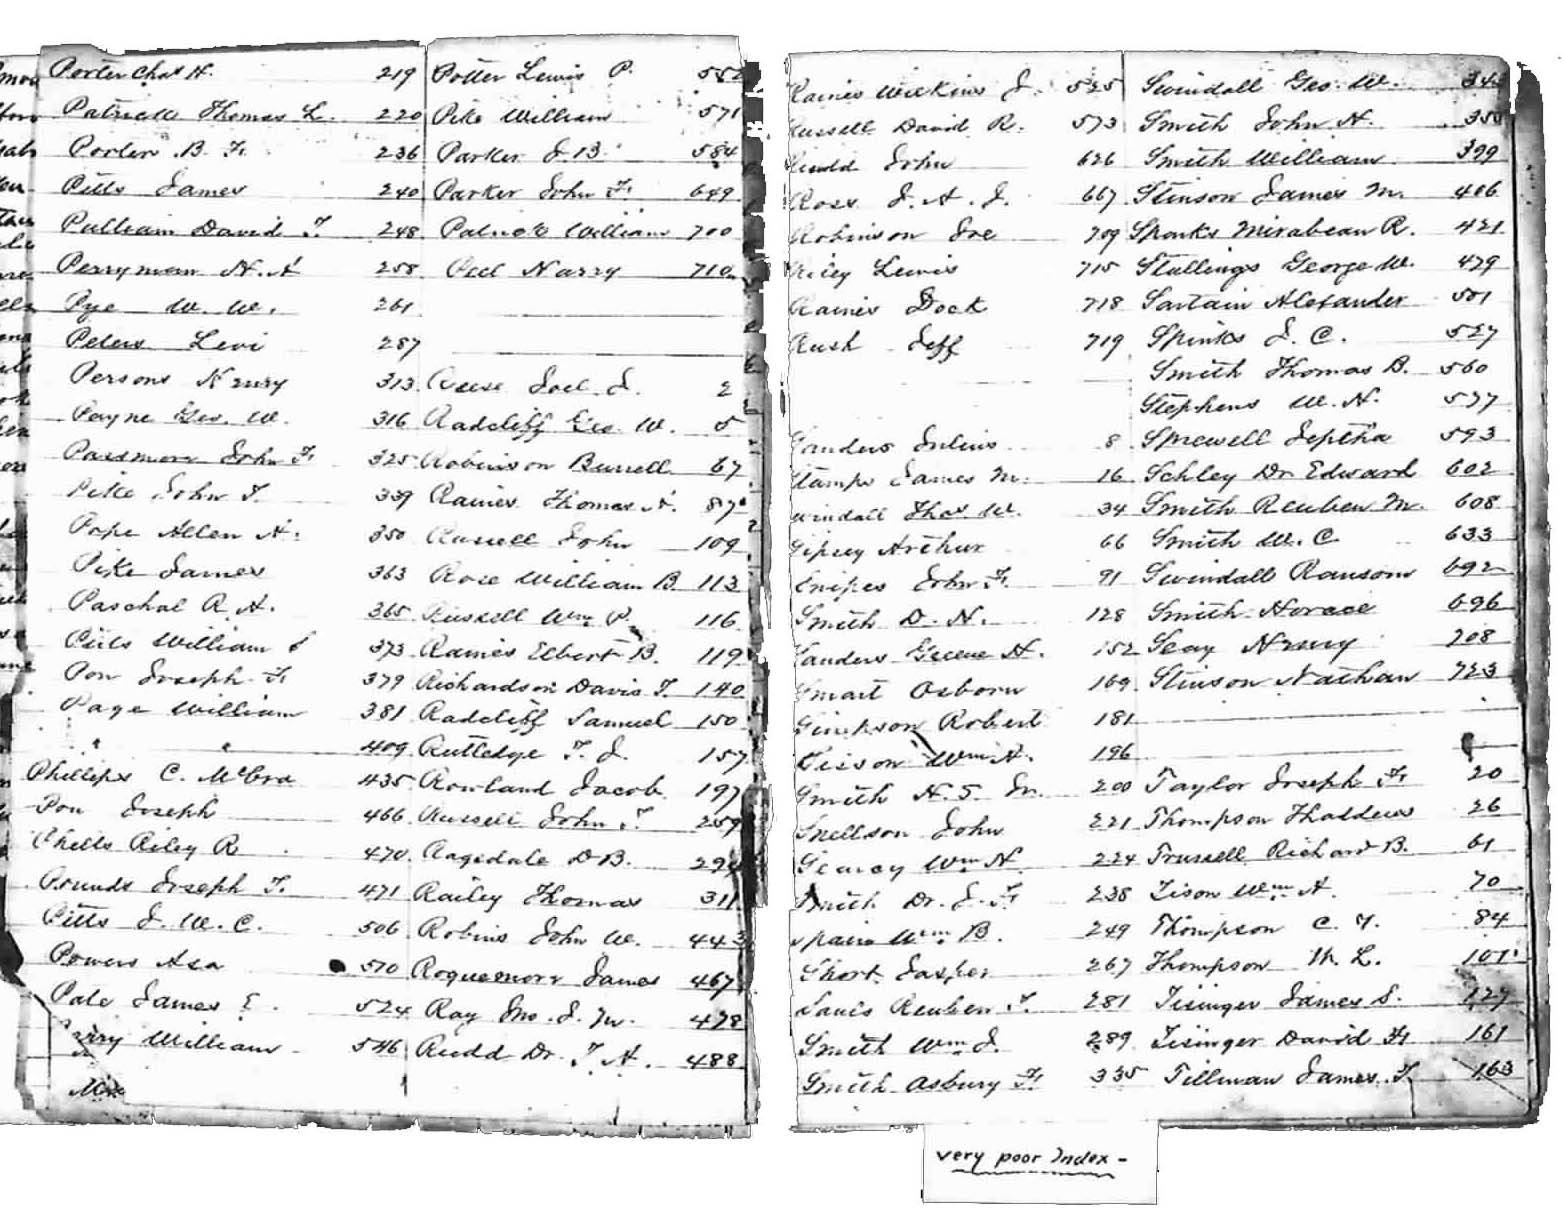 Porter Chas H. 219
Patrick Thomas L. 220
Porter B. F. 236
Pitts James 240
Pulliam David T. 248
Perryman H. A 258
Pye W. W. 261
Peters Levi 287
Persons Henry 313
Payne Geo. W. 316
Passmore John F. 325
Pike John T. 339
Pope Allen H. 350
Pike James 363
Paschal R. H. 365
William 373
Pon Joseph F. 379
Page William 381
" " 409
Phillips C. McCra 435
Pon Joseph 466
Riley R 470
Pounds Joseph T. 471
Pitts J. W. C. 506
Powers Asa 510
Pate James E. 524
William 546
Potter Lewis P. 552
Pike William 571
Parker J. B. 584
Parker John F. 649
Patrick William 700
Peel Harry 710
Reese Joel J. 2
Radcliff Geo. W. 5
Robinson Burrell 67
Raines Thomas A. 87
Russell John 109
Rose William B. 113
Russell Wm P. 116
Raines Elbert B. 119
Richardson Davis T. 140
Radcliff Samuel 150
Rutledge T. J. 157
Rowland Jacob 197
Russell John T. 259
Ragsdale D B. 29
Railey Thomas 311
Robins John W. 443
Roquemore James 467
Ray Jno. J. W. 478
Rudd Dr. T. A. 488
Raines Wilkins J. 525
Russell David R. 573
John 626
Ross J. A. J. 667
Robinson Joe 709
Riley Lewis 715
Raines Dock 718
Rush Jeff 719
Sanders Julius 8
Stamps James M. 16
Swindall Thos W. 34
Gipsey Arthur 66
Snipes John F. 91
Smith D. N. 128
Sanders Greene H. 152
Smart Osborn 169
Simpson Robert 181
Sisson Wm A. 196
Smith N. S. 200
Snellson John 221
Searcy Wm H 224
Smith Dr. J. F. 238
Wm B. 249
Short Jasper 267
Reuben T. 281
Smith Wm J. 289
Smith Asbury F. 335
Swindall Geo. W. 343
Smith John H. 350
Smith William 399
Stinson James M. 406
Sparks Mirabeau R. 421
Stallings George W. 479
Sartain Alexander 501
Spinks J. C. 527
Smith Thomas B. 560
Stephens W. H. 577
Sprewell Jeptha 593
Schley Dr Edward 602
Smith Reuben M. 608
Smith W. C 633
Swindall Ransom 692
Smith Horace 696
Seay Henry 708
Stinson Nathan 723
Taylor Joseph F. 20
Thompson Thaddeus 26
Trussell Richard B. 61
Tison Wm A 70
Thompson C. Y. 84
Thompson M. L. 101
Tisinger James S. 127
Tisinger David F. 161
Tillman James T. 163
very poor Index -